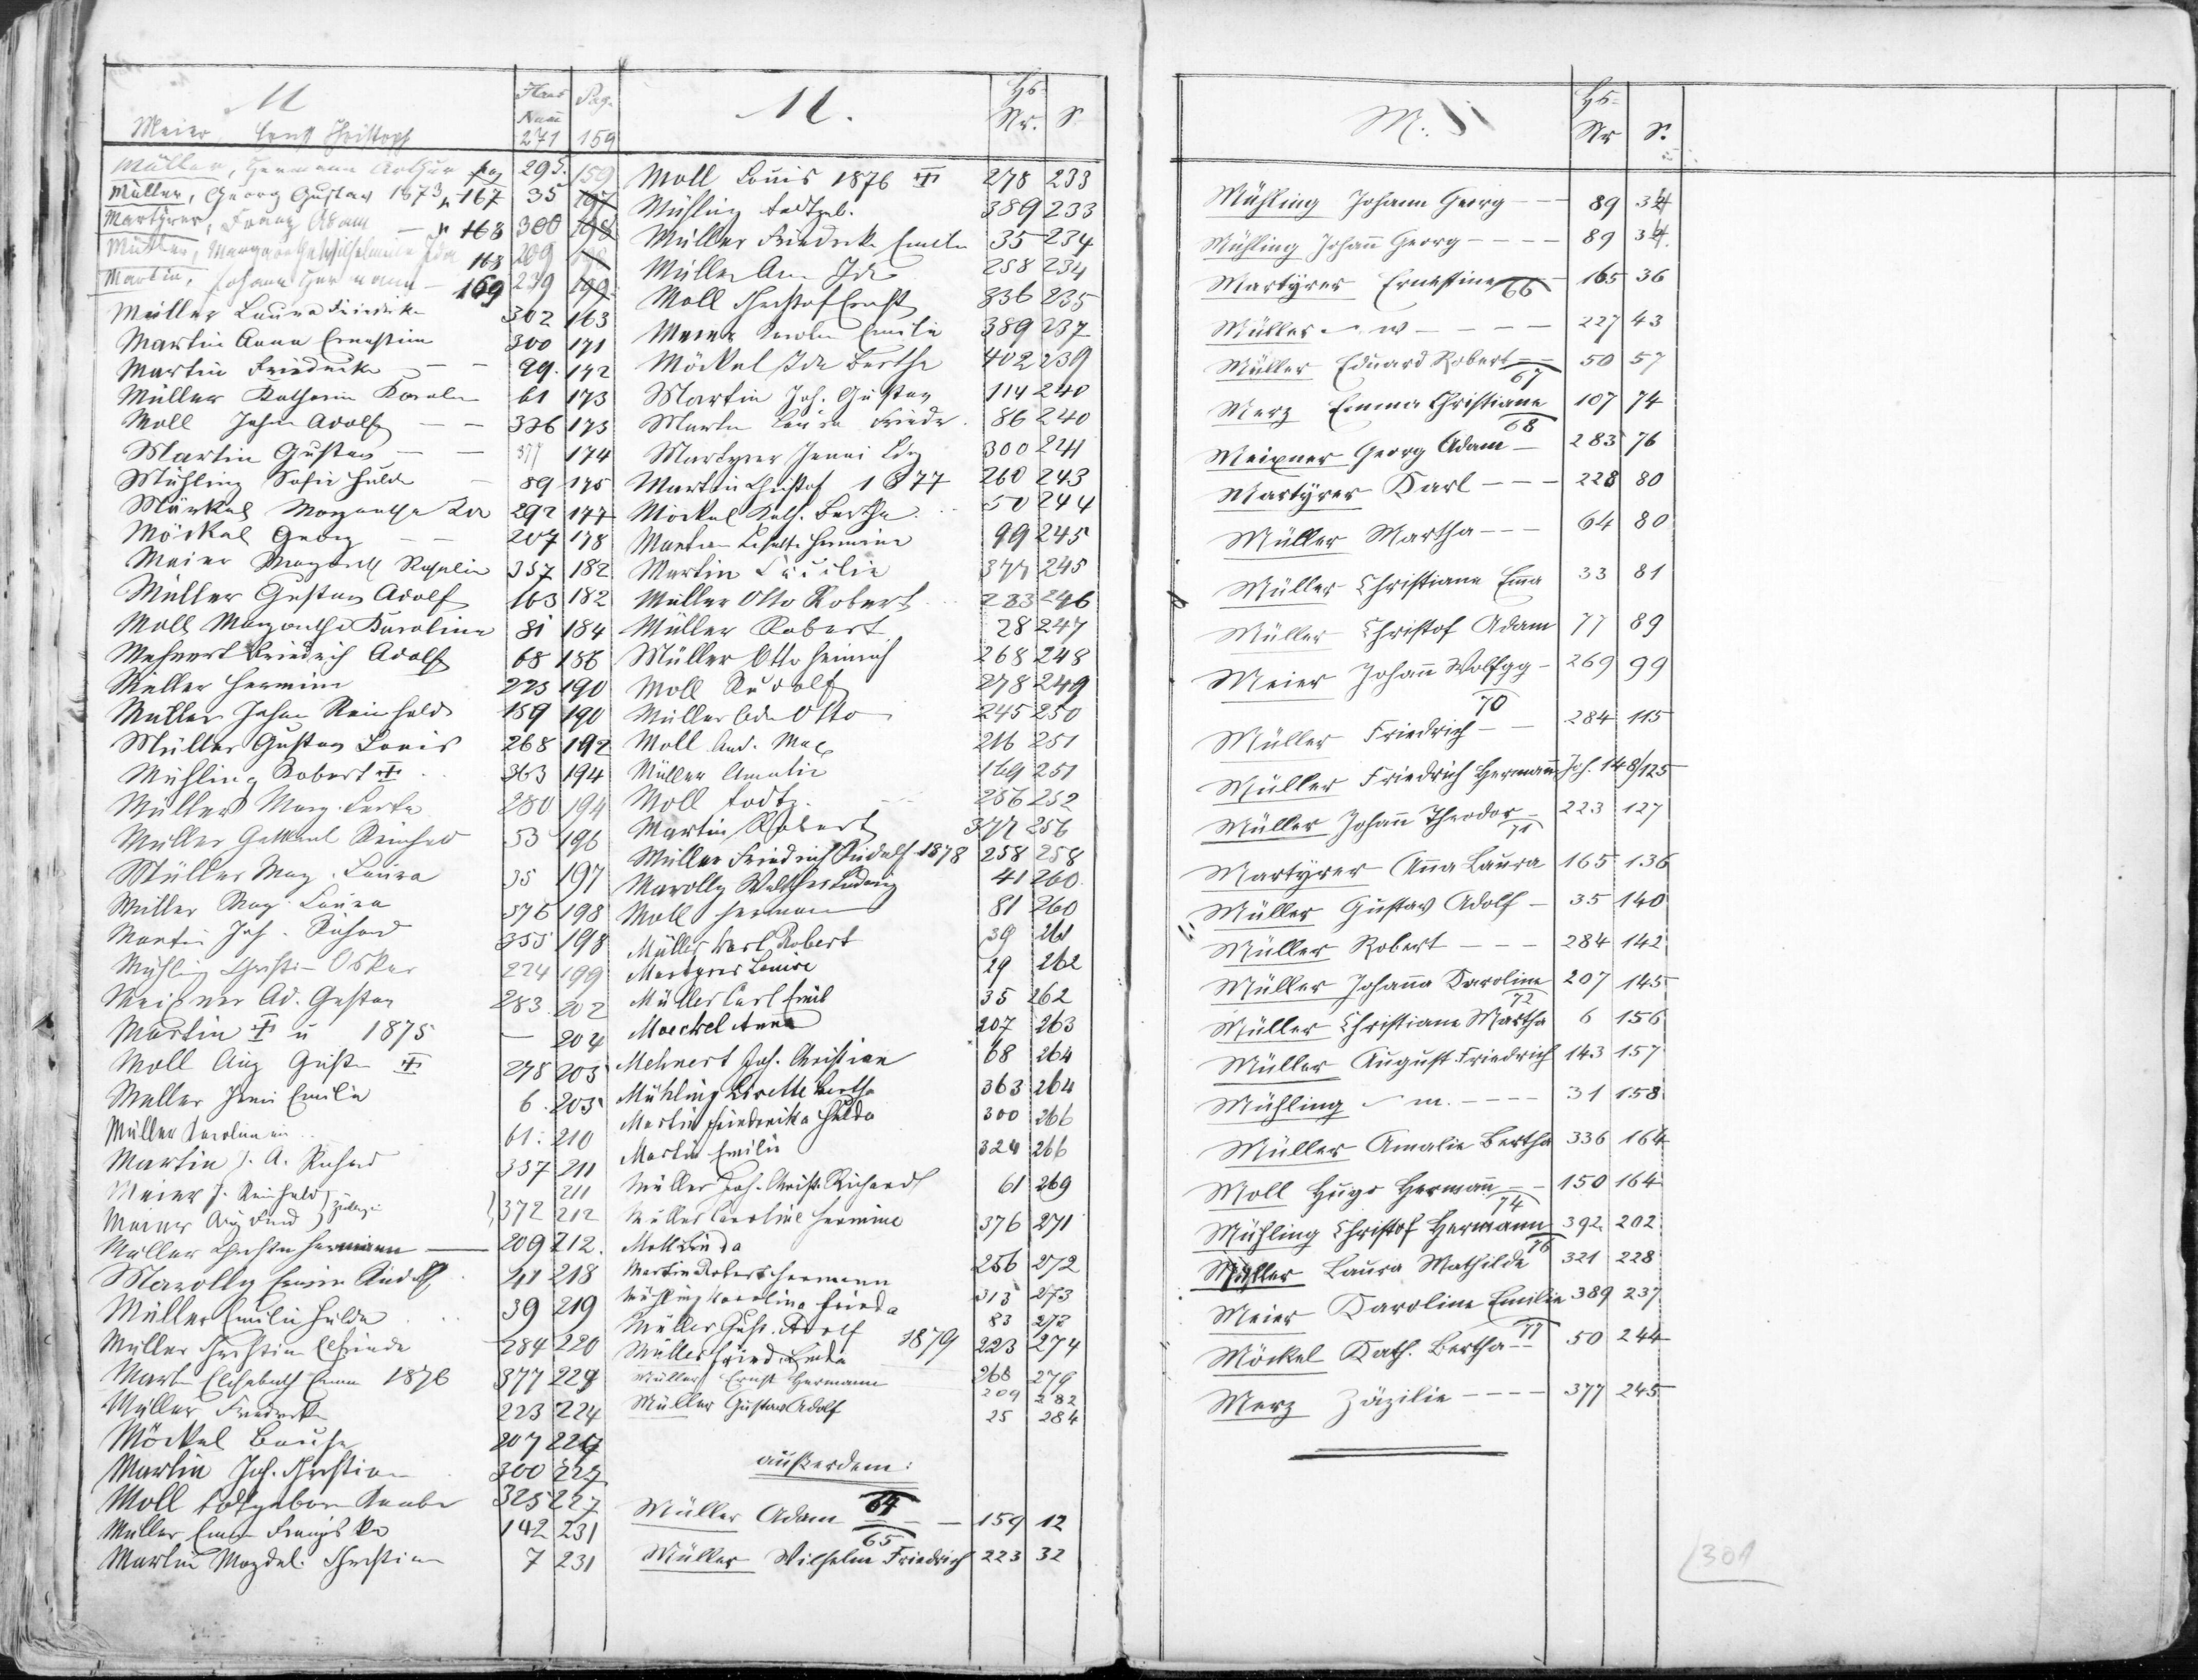 M
Haus Num Pag.
Meier Ernst Christoph 271 159
Müller, Hermann Arthur pag 295. 159
Müller, Georg Gustav 1873 " 167 35
Martyrer, Franz Adam — " 168 300
Müller, Margaretha Wilhelmine Ida 168 209
Martin, Johann Hermann — 169 239 199
Müller Laura Friedrike 302 163
Martin Anna Ernestine 300 171
Martin Friedricke — — 99. 172
Müller Katharin Karoline 61 173
Moll Johann Adolf — — 336 173
Martin Gustav — — 377 174
Mühling Sofie Hulda — 89 175
Möckel Margaretha Ida 292 177
Möckel Georg — — 207 178
Meier Magdal Rosalie 357 182
Müller Gustav Adolf 163 182
Moll Margaretha Karoline 81 184
Mehnert Friedrich Adolf 68 186
Müller Hermine 223 190
Müller Johann Reinhold 159 190
Müller Gustav Louis 268 192
Mühling Robert . . 363 194
Müller Marg. 280 194
Müller Reinhold 53 196
Müller Mag. Laura 35 197
Müller Mag. Laura 376 198
Martin Joh. Richard 355 198
Mühling Christ. Oskar 224 199
Meißner Ad. Gustav 283. 202
Martin u 1875 — 204
Moll Aug Gust 278 205
Müller Emilie 6. 205
Müller Karoline 61. 210
Martin J. A. Richard 357 211
Meier J. Reinhold 211
Meier Aug Ferd 372 212
Müller Christian Hermann — 209 212.
Marolly Erwin Rudolf. 41 218
Müller Emilie Hulda . . 39 219
Müller Christian Elfriede 284 220
Martin Elisabeth Emma 1876 377 224
Müller Friedricke 223 224
Möckel Louise 207 224
Martin Joh. Christian 300 227
Moll todtgeborn Knabe 325 227
Müller Emma Franziska 142 231
Martin Magdal. Christian 7 231
M.
Hs-Nr. S
Moll Louis 1876 278 233
Mühling todtgeb. 389 233
Müller Friedricke Emilie 35 234
Müller Ida 258 234
Moll Christof Ernst 336 235
Meier Karolin Emilie 389 237
Möckel Ida Bertha 402 239
Martin Joh. Gustav 114 240
Martin Laura Friedr. 86 240
Martyrer Jenni Ida 300 241
Martin Christof 1877 260 243
Möckel Kath. Bertha . . 50 244
Martin Lisette Hermine 99 245
Martin Cäcilie 377 245
Müller Otto Robert . . 283 246
Müller Robert. 28 247
Müller Otto Heinrich 268 248
Moll Rudolf 278 249
Müller Otto 245 250
Moll And. Max 216 251
Müller Amalie 169 251
Moll todtg. 256 252
Martin Robert 377 256
Müller Friedrich Rudolf 1878 258 258
Marolly Walther Ludwig 41 260
Moll Hermann 81 260
Müller Karl Robert 39 261
Martyrer Louise 29 262
Müller Carl Emil 35 262
Moeckel Anna 207 263
Mehnert Joh. Christian 68 264
Mühling Lisette Bertha 363 264
Martin Friederika Hulda 300 266
Martin Emilie 324 266
Müller Joh. Christ. Richard 61 269
Müller Caroline Hermine 376 271
Moll Linda 256 272
Martin Robert Hermann 313 273
Mühling Karolina Frieda 83 273
Müller Gust. Adolf 1879 223 274
Müller Fried. Linda 268 279
Müller Ernst Hermann 209 282
Müller Gustav Adolf 25 284
außerdem:
Müller Adam 64 — 159 12
Müller Wilhelm Friedrich 65 223 32
M.
Hs-Nr S.
Mühling Johann Georg — — 89 34
Mühling Johann Georg — — — — 89 34.
Martyrer Ernestine 66 165 36
Müller m — — — — 227 43
Müller Eduard Robert — — 50 57
67
Merz Emma Christiane 107 74
68
Meixner Georg Adam — 283 76
Martyrer Karl — — — 228 80
Müller Martha — — 64 80
Müller Christiane Emma 33 81
Müller Christof Adam 77 89
Meier Johann Wolfgg — 269 99
70
Müller Friedrich — — 284 115
Müller Friedrich Hermann Joh. 148/125
Müller Johann Theodor — 223 127
71
Martyrer Anna Laura 165 136
Müller Gustav Adolf — 35 140
Müller Robert — — — 284 142
Müller Johanna Karoline 207 145
72
Müller Christiane Martha 6 156
Müller August Friedrich 143 157
Mühling m. — — — — 31 158
Müller Amalie Bertha 336 164
Moll Hugo Hermann — — 150 164
74
Mühling Christof Hermann 392 202
76
Müller Laura Mathilde 321 228
Meier Karoline Emilie 389 237
Möckel Kath. Bertha 77 — 50 244
Merz Zäzilie — — — — 377 245
301